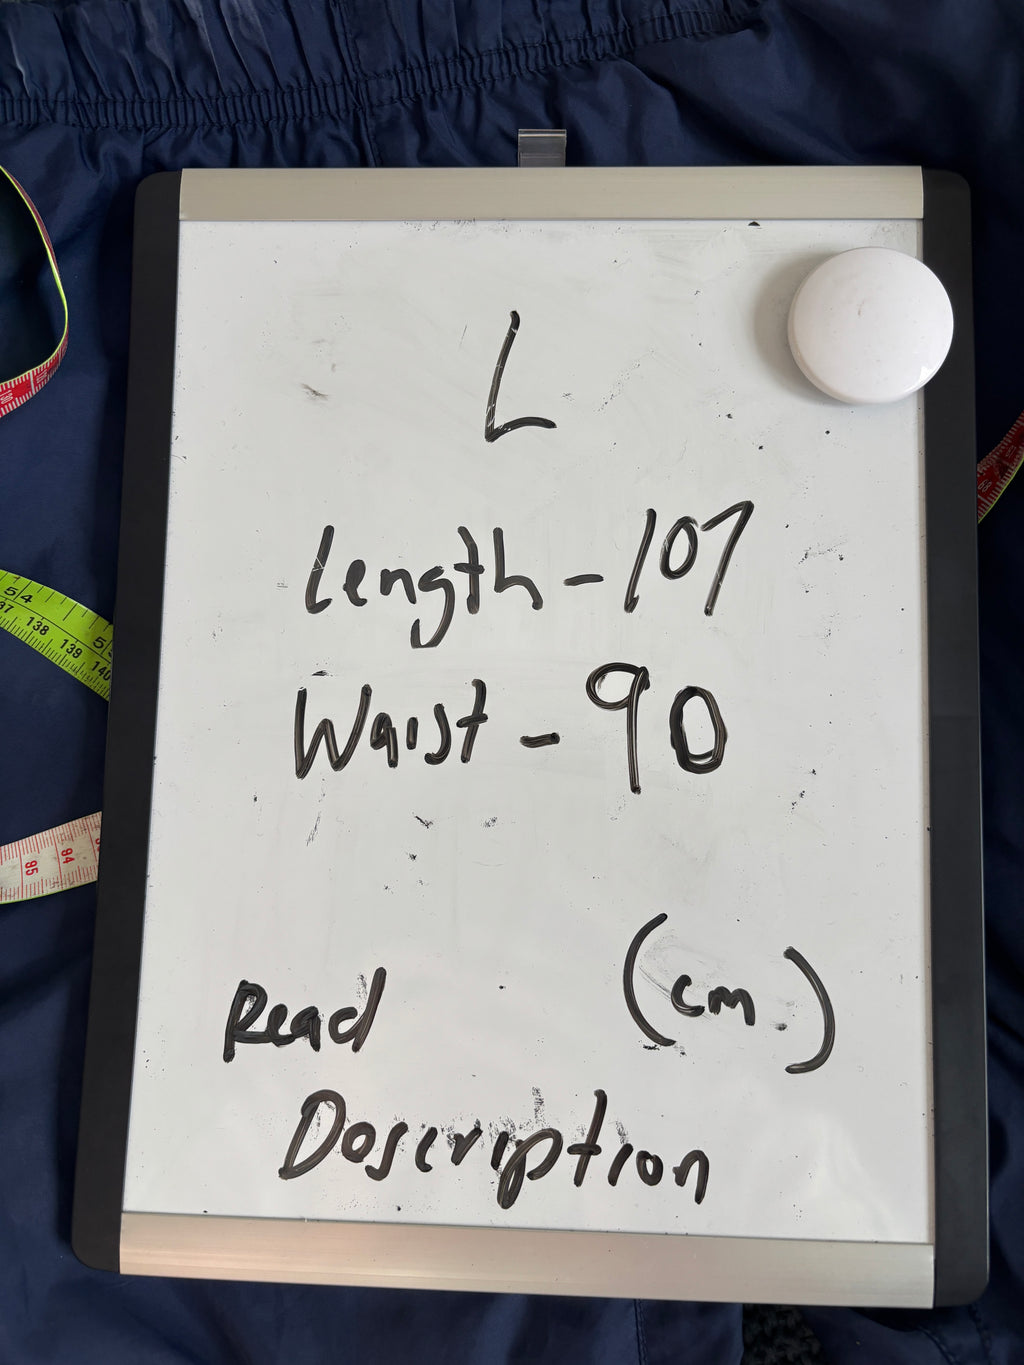 L
Length - 107
Waist - 90
(cm)
Read
Doscription
5 4
37 138 139 140
5
94
95